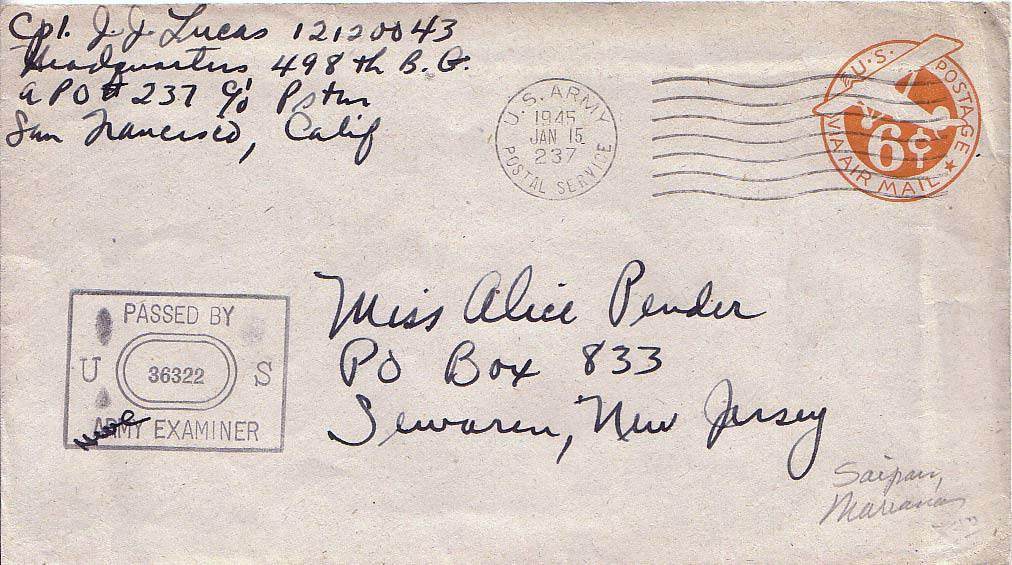 Cpl. J. J. Lucas 12120043
Headquarters 498th B. G.
APO # 237 c/o Pstmr
San Francisco, Calif
U.S. ARMY
1945
JAN 15
237
POSTAL SERVICE
U.S. POSTAGE
6¢
VIA AIR MAIL
PASSED BY
U 36322 S
ARMY EXAMINER
Miss Alice Pender
PO Box 833
Sewaren, New Jersey
Saipan,
Marianas